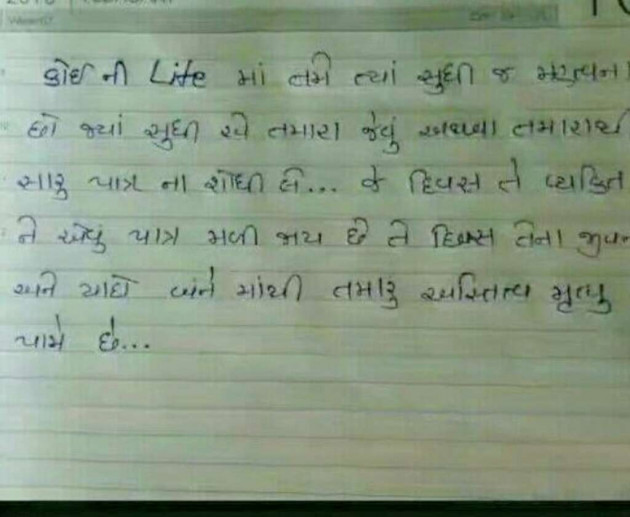 કોઈ ની Life માં તમે ત્યાં સુધી જ મહત્વના
છો જ્યાં સુધી એ તમારા જેવું અથવા તમારાથી
સારુ પાત્ર ના શોધી લે... જે દિવસ તે વ્યકિત
ને એવું પાત્ર મળી જાય છે તે દિવસ તેના જીવન
અને યાદો બંને માંથી તમારુ અસ્તિત્વ મૃત્યુ
પામે છે...